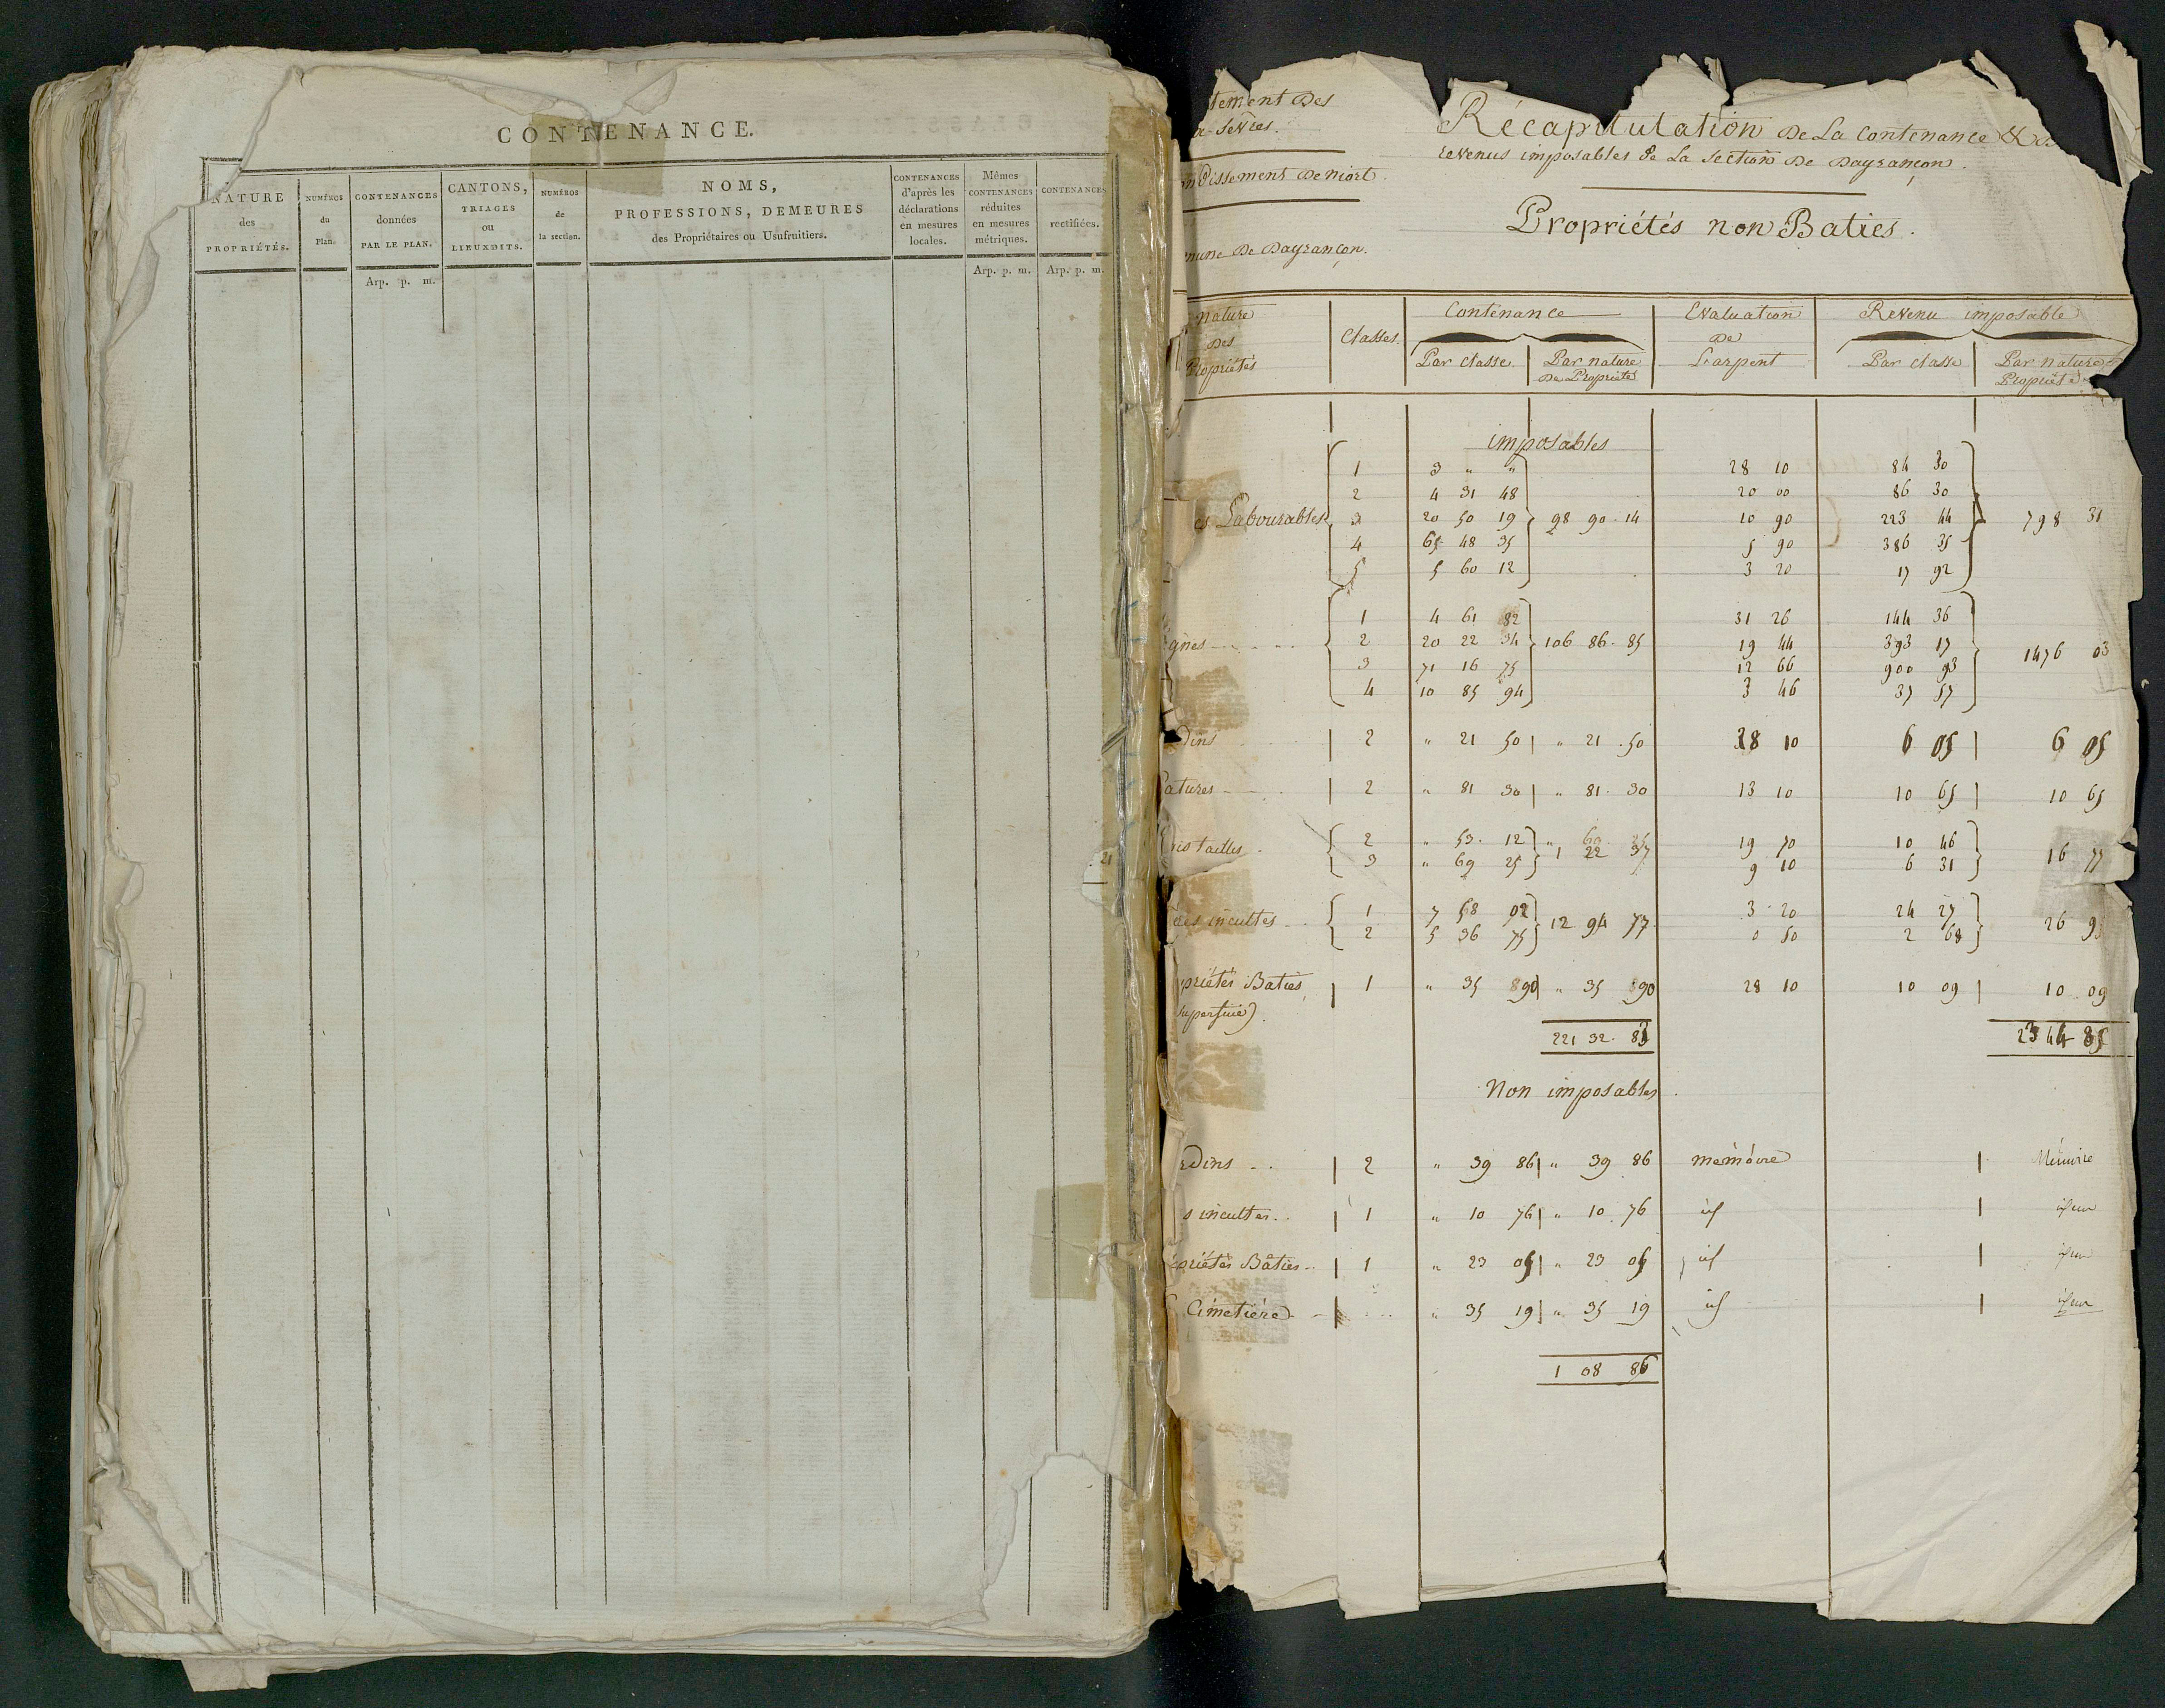 CONTENANCE.
NATURE des PROPRIÉTÉS.
NUMÉROS du Plan.
CONTENANCES données PAR LE PLAN.
CANTONS, TRIAGES ou LIEUXDITS.
NUMÉROS de la section.
NOMS, PROFESSIONS, DEMEURES des Propriétaires ou Usufruitiers.
CONTENANCES d'après les déclarations en mesures locales.
Mêmes CONTENANCES réduites en mesures métriques.
CONTENANCES rectifiées.
Arp. p. m.
Arp. p. m.
Arp. p. m.
21
tement Des
Sèvres.
ondissement De niort.
mune De Dayrançon.
Récapitulation De La Contenance &
revenus imposables de La Section De Dayrançon.
Propriétés non Baties.
nature Des Propriétés
Classes.
Contenance
Par Classe.
Par nature De Propriété
Evaluation De L'arpent
Revenu imposable
Par Classe
Par nature Propriété
imposables
1 3 " " 28 10 84 30
2 4 31 48 20 00 86 30
es Labourables 3 20 50 19 98 90 14 10 90 223 44 798 31
4 65 48 35 5 90 386 35
5 5 60 12 3 20 17 92
1 4 61 82 31 26 144 36
gnes 2 20 22 34 106 86 85 19 44 393 17 1476 03
3 71 16 75 12 66 900 93
4 10 85 94 3 46 37 57
dins 2 " 21 50 " 21 50 28 10 6 05 6 05
atures 2 " 81 30 " 81 30 13 10 10 65 10 65
2 " 53 12 19 70 10 46
taillis 1 22 37 16 77
3 " 69 25 9 10 6 31
1 7 58 02 3 20 24 27
res incultes 12 94 77 26 9
2 5 36 75 0 50 2 68
priétés Baties 1 " 35 90 " 35 90 28 10 10 09 10 09
superficie)
221 32 83 2344 85
Non imposables.
rdins 2 " 39 86 " 39 86 mémoire Mémoire
s incultes 1 " 10 76 " 10 76 id
opriétés Bâties 1 " 23 05 " 23 05 id
Cimetière " 35 19 " 35 19 id
1 08 86